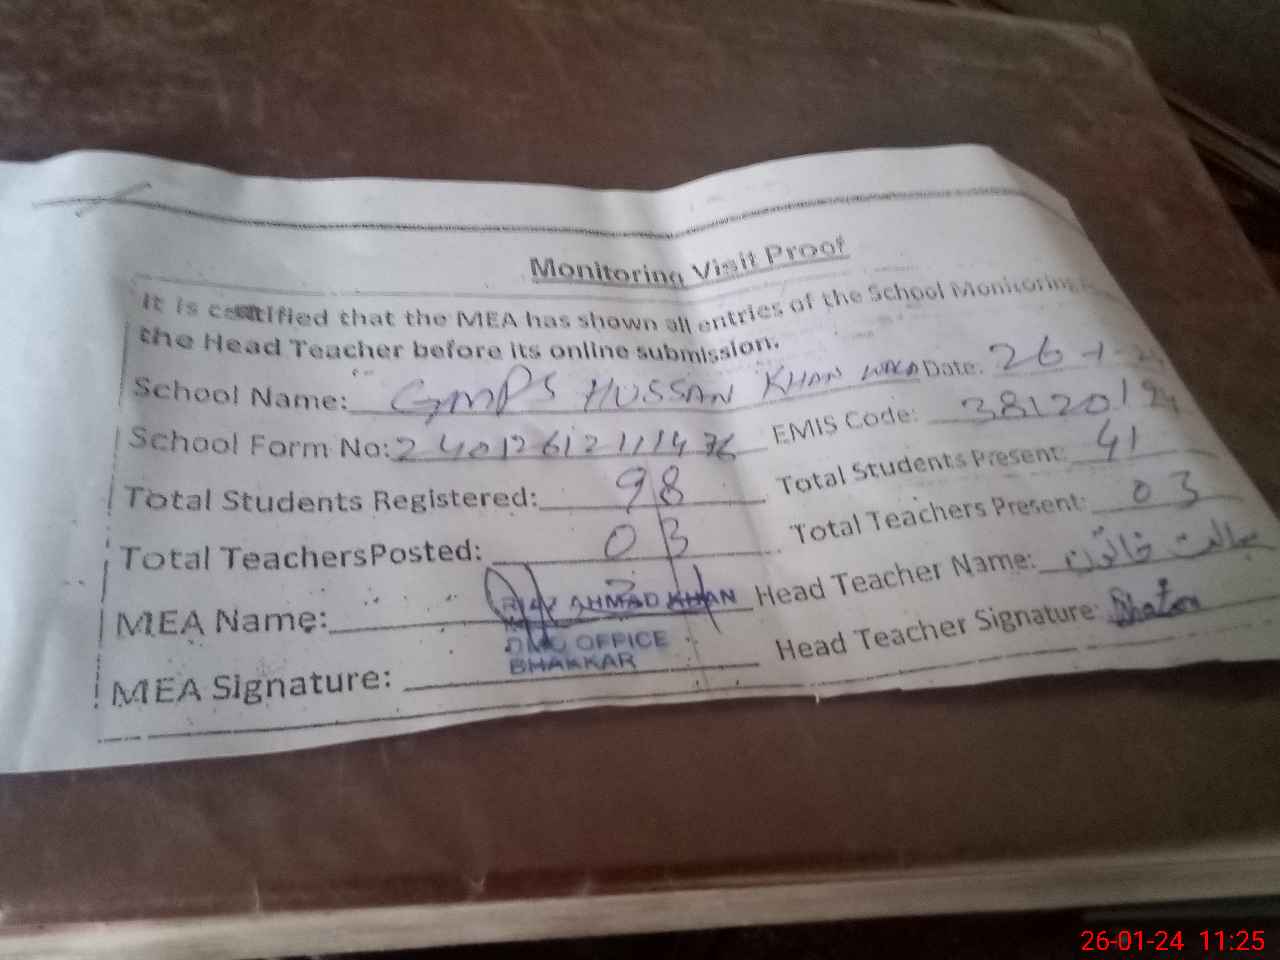 Monitoring Visit Proof
It is certified that the MEA has shown all entries of the School Monitoring
the Head Teacher before its online submission.
School Name: GMPS HUSSAN KHAN WALA Date: 26-1-
School Form No: EMIS Code:
Total Students Registered: 98 Total Students Present: 41
Total TeachersPosted: 03 Total Teachers Present: 03
MEA Name: RIAZ AHMAD KHAN Head Teacher Name: خاتون
DMO OFFICE
BHAKKAR
MEA Signature: Head Teacher Signature:
26-01-24 11:25